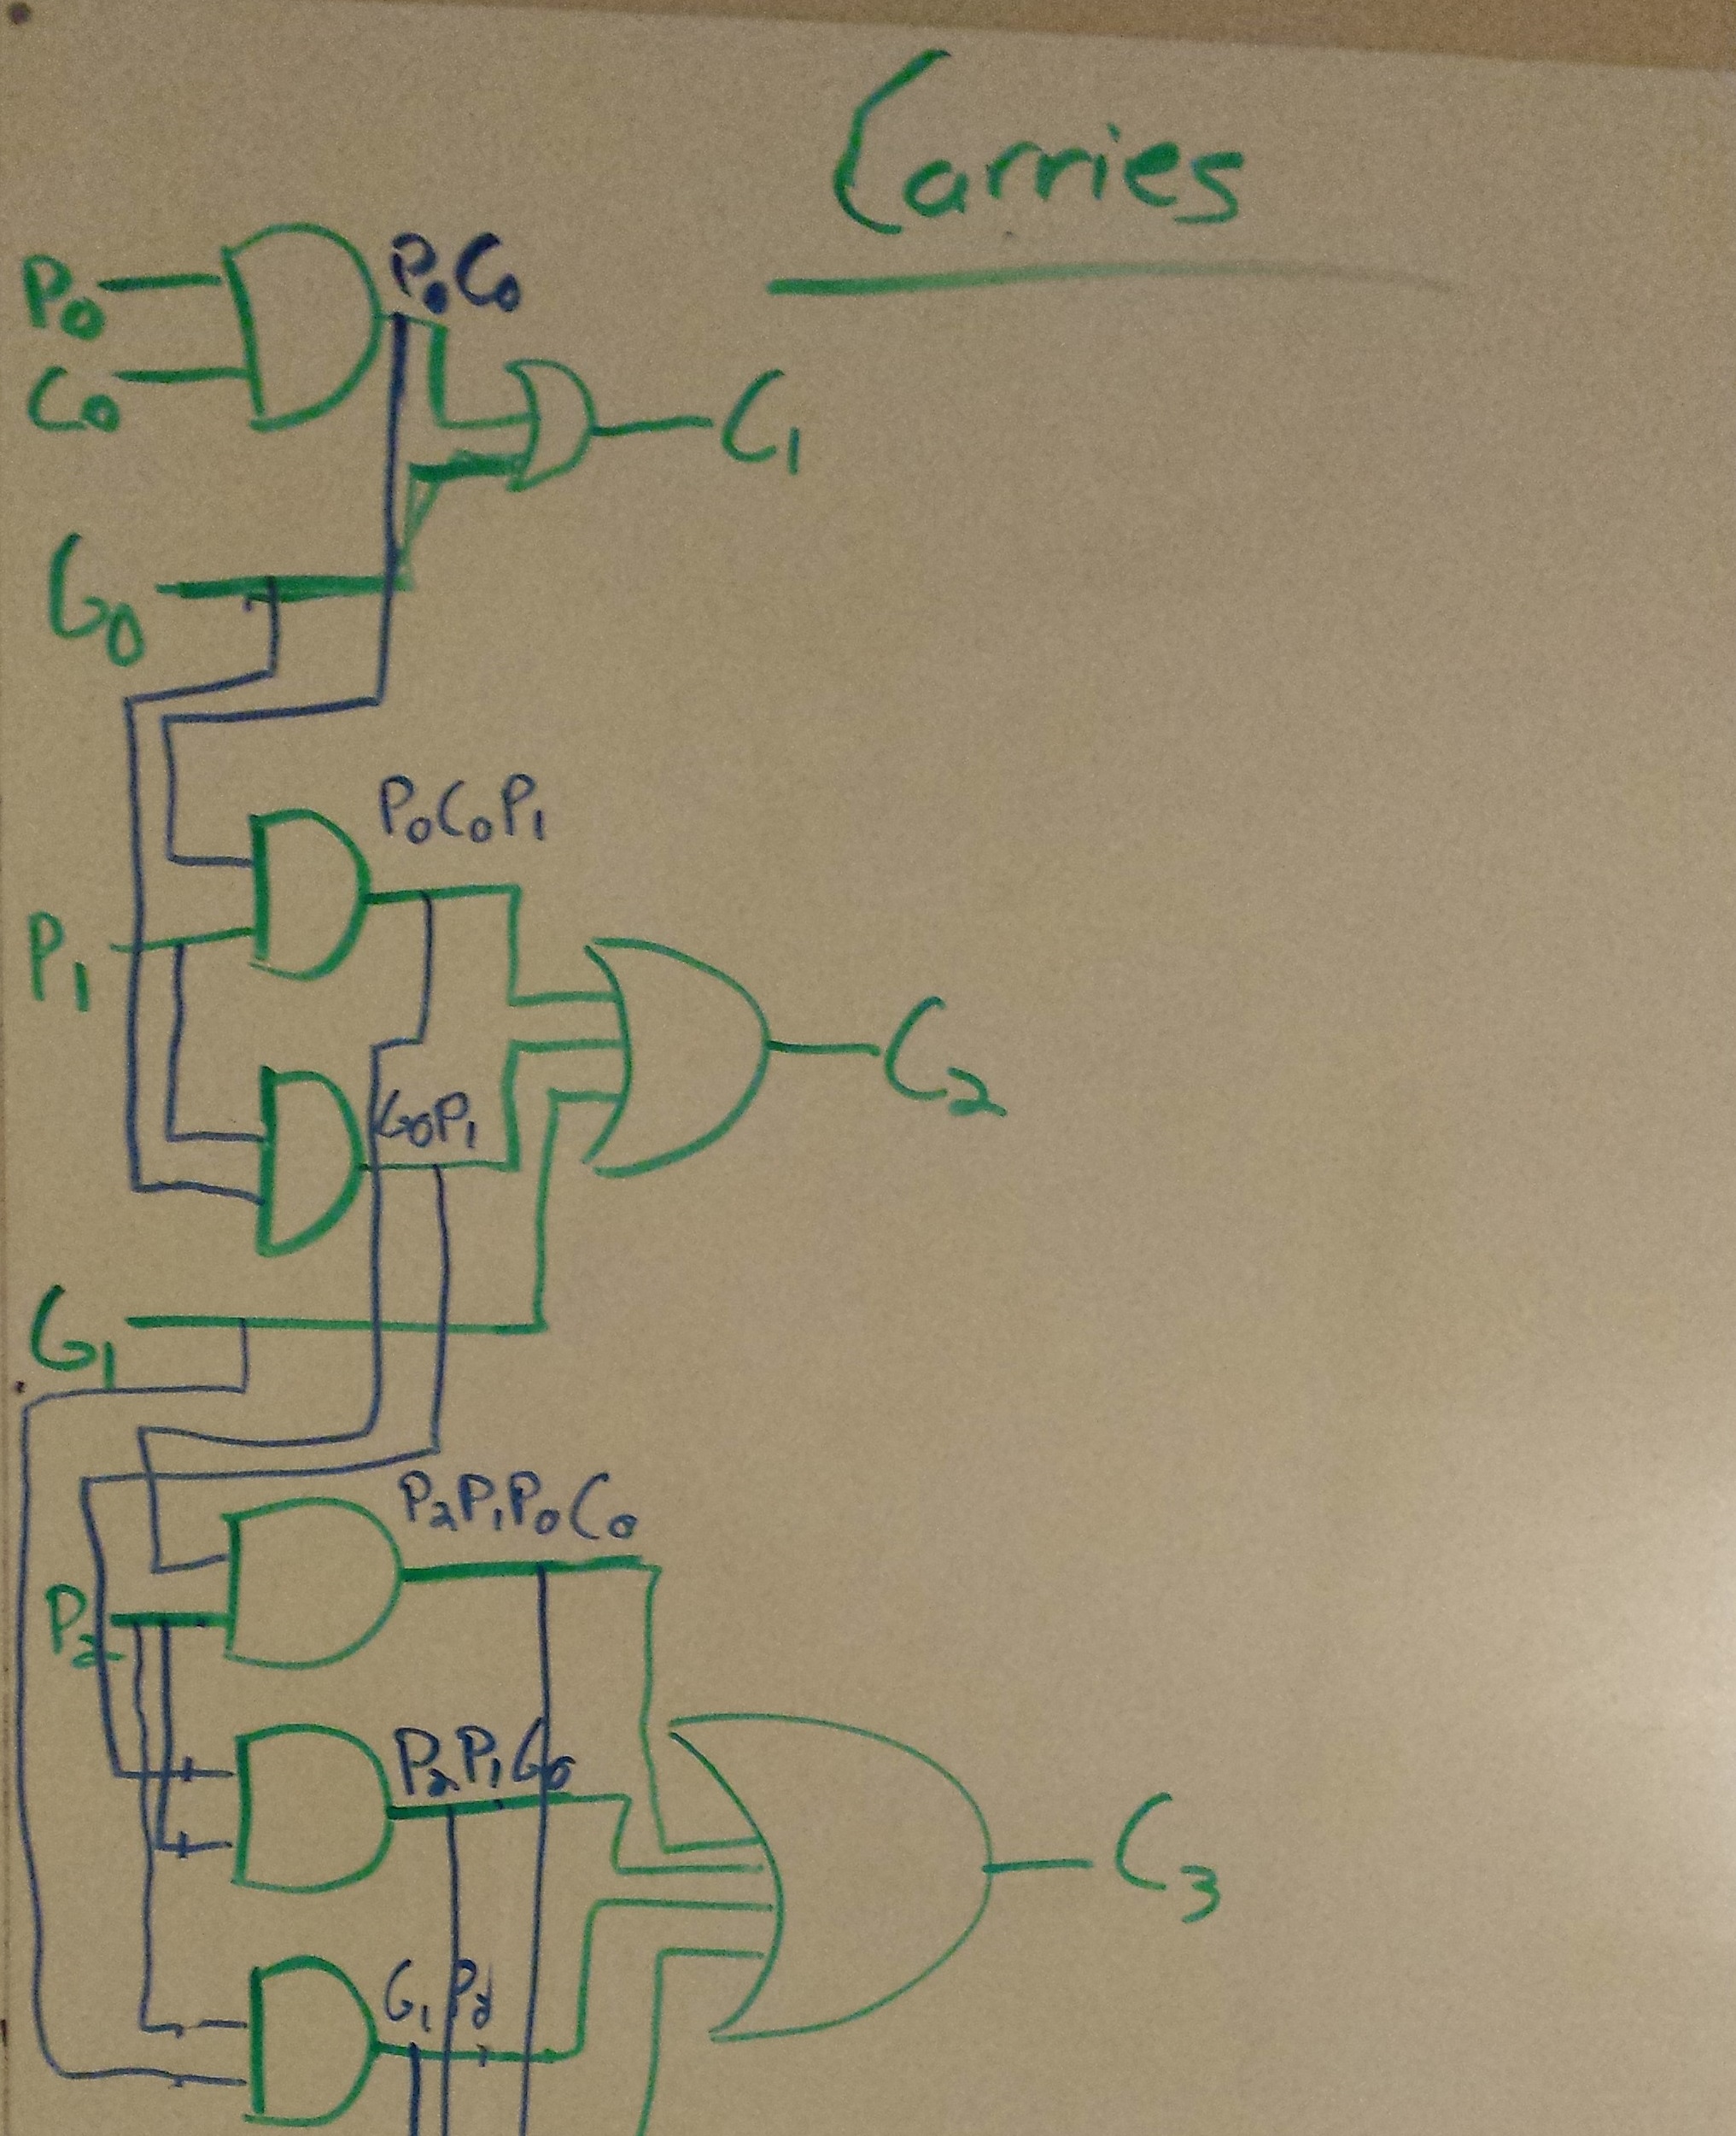 Carries
P0
P0C0
C0
C1
G0
P0C0P1
P1
C2
G0P1
G1
P2P1P0C0
P2
P2P1G0
C3
G1P2